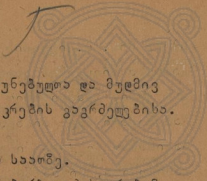 უნებულთა და მუდმივ
კრების გაგრძელებისა.
საათზე.